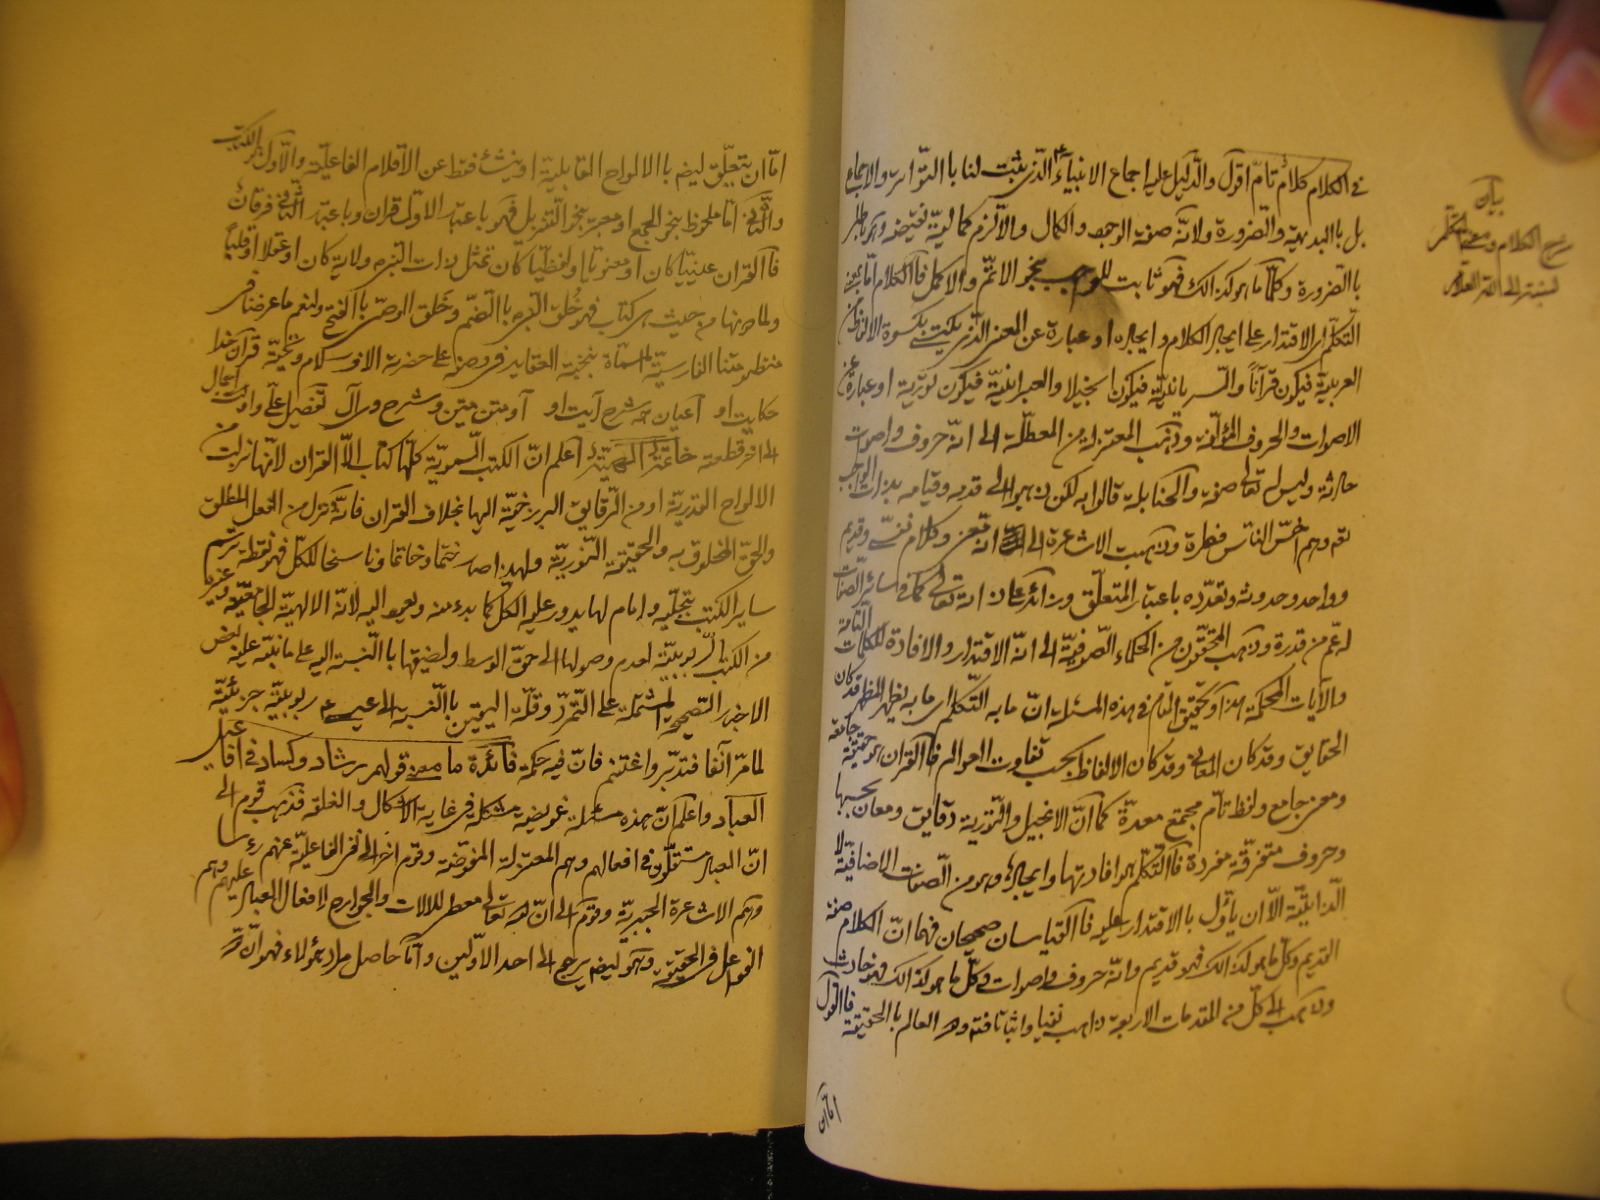 في الكلام كلام تام اقول والدليل عليه اجماع الانبياء الذي ثبت لنا بالتواتر والاجماع
بل بالبديهية والضرورة ولانه صفة الوجوب والكمال والا لزم كمالية نقيضه وهو باطل
بالضرورة وكلما هو كذلك فهو ثابت للوجوب بنحو الاتم والاكمل فالكلام اما بمعنى
التكلم اي الاقتدار على ايجاد الكلام وايجاده او عبارة عن المعنى الذي يكتسي بكسوة الالفاظ
العربية فيكون قرآنا والسريانية فيكون انجيلا والعبرانية فيكون تورية او عبارة عن
الاصوات والحروف المؤلفة وذهب المعتزلة من المعطلة الى انه حروف واصوات
حادثة وليس له تعالى صفة والحنابلة قالوا به لكن ذهبوا الى قدمه وقيامه بذات الواجب
وهم اخس الناس فطرة وذهبت الاشاعرة الى انه معنى وكلام نفسي وقديم
وواحد وحدوثه وتعدده باعتبار المتعلق وزائد على ذاته تعالى كما في سائر الصفات
من قدرة وذهب المحققون من الحكماء الصوفية الى انه الاقتدار والافادة للكلمات التامة
والآيات المحكمة هذا وتحقيق المقام في هذه المسئلة ان ما به التكلم اي ما به يظهر المظهر قد كان
الحقايق وقد كان المعاني وقد كان الالفاظ بحسب تفاوت العوالم فالقران هو حقيقة جامعة
ومعنى جامع ولفظ تام مجتمع معدة كما ان الانجيل والتورية دقايق ومعان بحسبها
وحروف متفرقة مفردة فالتكلم هو افادتها وايجادها وهو من الصفات الاضافية لا
الذاتية الا ان يأول بالاقتدار عليه فالقياسان صحيحان فهما ان الكلام صفة
القديم وكل ما هو كذلك فهو قديم وانه حروف واصوات وكل ما هو كذلك فهو حادث
وذهب الى كل من المقدمات الاربعة ذاهب نفيا واثباتا فتم وهو العالم بالحقيقة فالقول
بيان
شرح الكلام ومعنى التكلم
اما ان
اما ان يتعلق ايضا بالالواح القابلية او ينشئ فقط عن الاقلام الفاعلية والاول هو الكتب
والثاني اما ملحوظ بنحو الجمع او معتبر بنحو التنزيل فهو باعتبار الاول قران وباعتبار الثاني فرقان
فالقران عينيا كان او معنويا ولفظيا كان تمثل ذات النبي ولاية كان او عقلا او قلبا
ولما من حيث اي كتاب فهو خلق النبي بالضم وخلق الوصي بالفتح ولنعم ما عرضنا في
منظومتنا الفارسية المسماة بنخبة العقايد في وصف على حضرة الاقدس سلام وتحية قرآن خدا
حكايت او اعيان همه شرح آيت او او متن متين وشرح وآل تفصيل على واوست اجمال
الى آخر قطعته خاتمة الهية اعلم ان الكتب السموية كلها كتاب الا القران لانها نزلت من
الالواح القدرية او من الرقايق البرزخية الها بخلاف القران فانه نزل من الفعل المطلق
والحق المخلوق به والحقيقة النورية ولهذا صار ختما وخاتما وناسخا للكل فهو نقطة ترسم
ساير الكتب بتجليه وامام لها يدور عليه الكل كما بدء منه ويعود اليه لانه الالهية الجامعة وغيره
من الكتب الربوبية لعدم وصولها الى حق الوسط ولضيقها بالنسبة اليه على ما نبه عليه بعض
الاخبار الصحيحة المشتملة على التمرد وقلة اليقين بالنسبة الى عيسى ربوبية جزئية
لما مر آنفا فتدبر واغتنم فان فيه حكمة فائدة ما معنى قولهم رشاد وكساد في افاعيل
العباد واعلم ان هذه مسئلة غويصة مشكلة في غاية الاشكال والغلق فذهب قوم الى
ان العباد مستقلون في افعالهم وهم المعتزلة المفوضة وقوم آخر الى نفي الفاعلية عنهم رأسا
وهم الاشاعرة الجبرية وقوم الى ان الله تعالى معطي للالات والجوارح لافعال العباد عليهم وهم
الفواعل في الحقيقة وهو ايضا يرجع الى احد الاولين واما حاصل مراد هؤلاء فهو ان